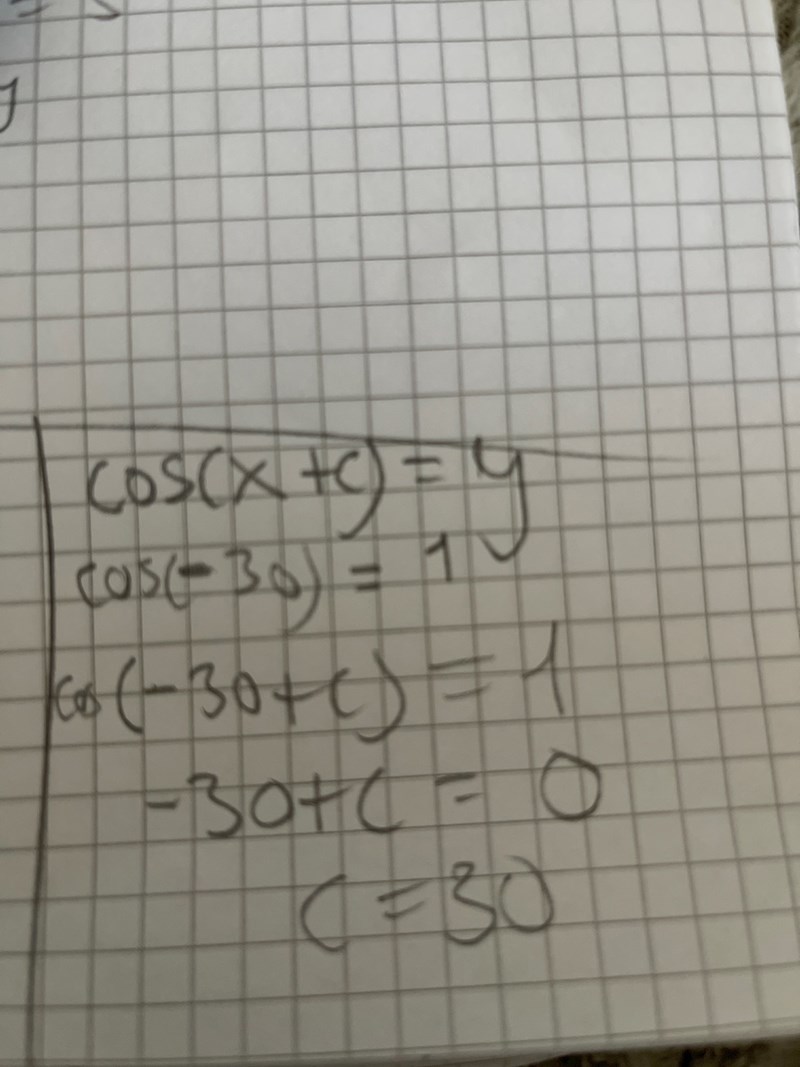 cos(x+c) = y
cos(-30) = 1
cos(-30+c) = 1
-30+c = 0
c = 30